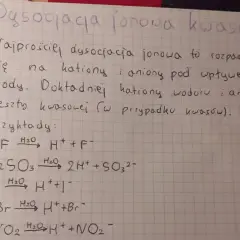 Dysocjacja jonowa kwasó
Najprościej dysocjacja jonowa to rozpad
się na kationy i aniony pod wpływe
ody. Dokładniej kationy wodoru i an
eszto kwasowej (w przypadku kwasów).
rzykłady:
F H₂O→ H⁺ + F⁻
₂SO₃ H₂O→ 2H⁺ + SO₃²⁻
H₂O→ H⁺ + I⁻
Br H₂O→ H⁺ + Br⁻
NO₂ H₂O→ H⁺ + NO₂⁻